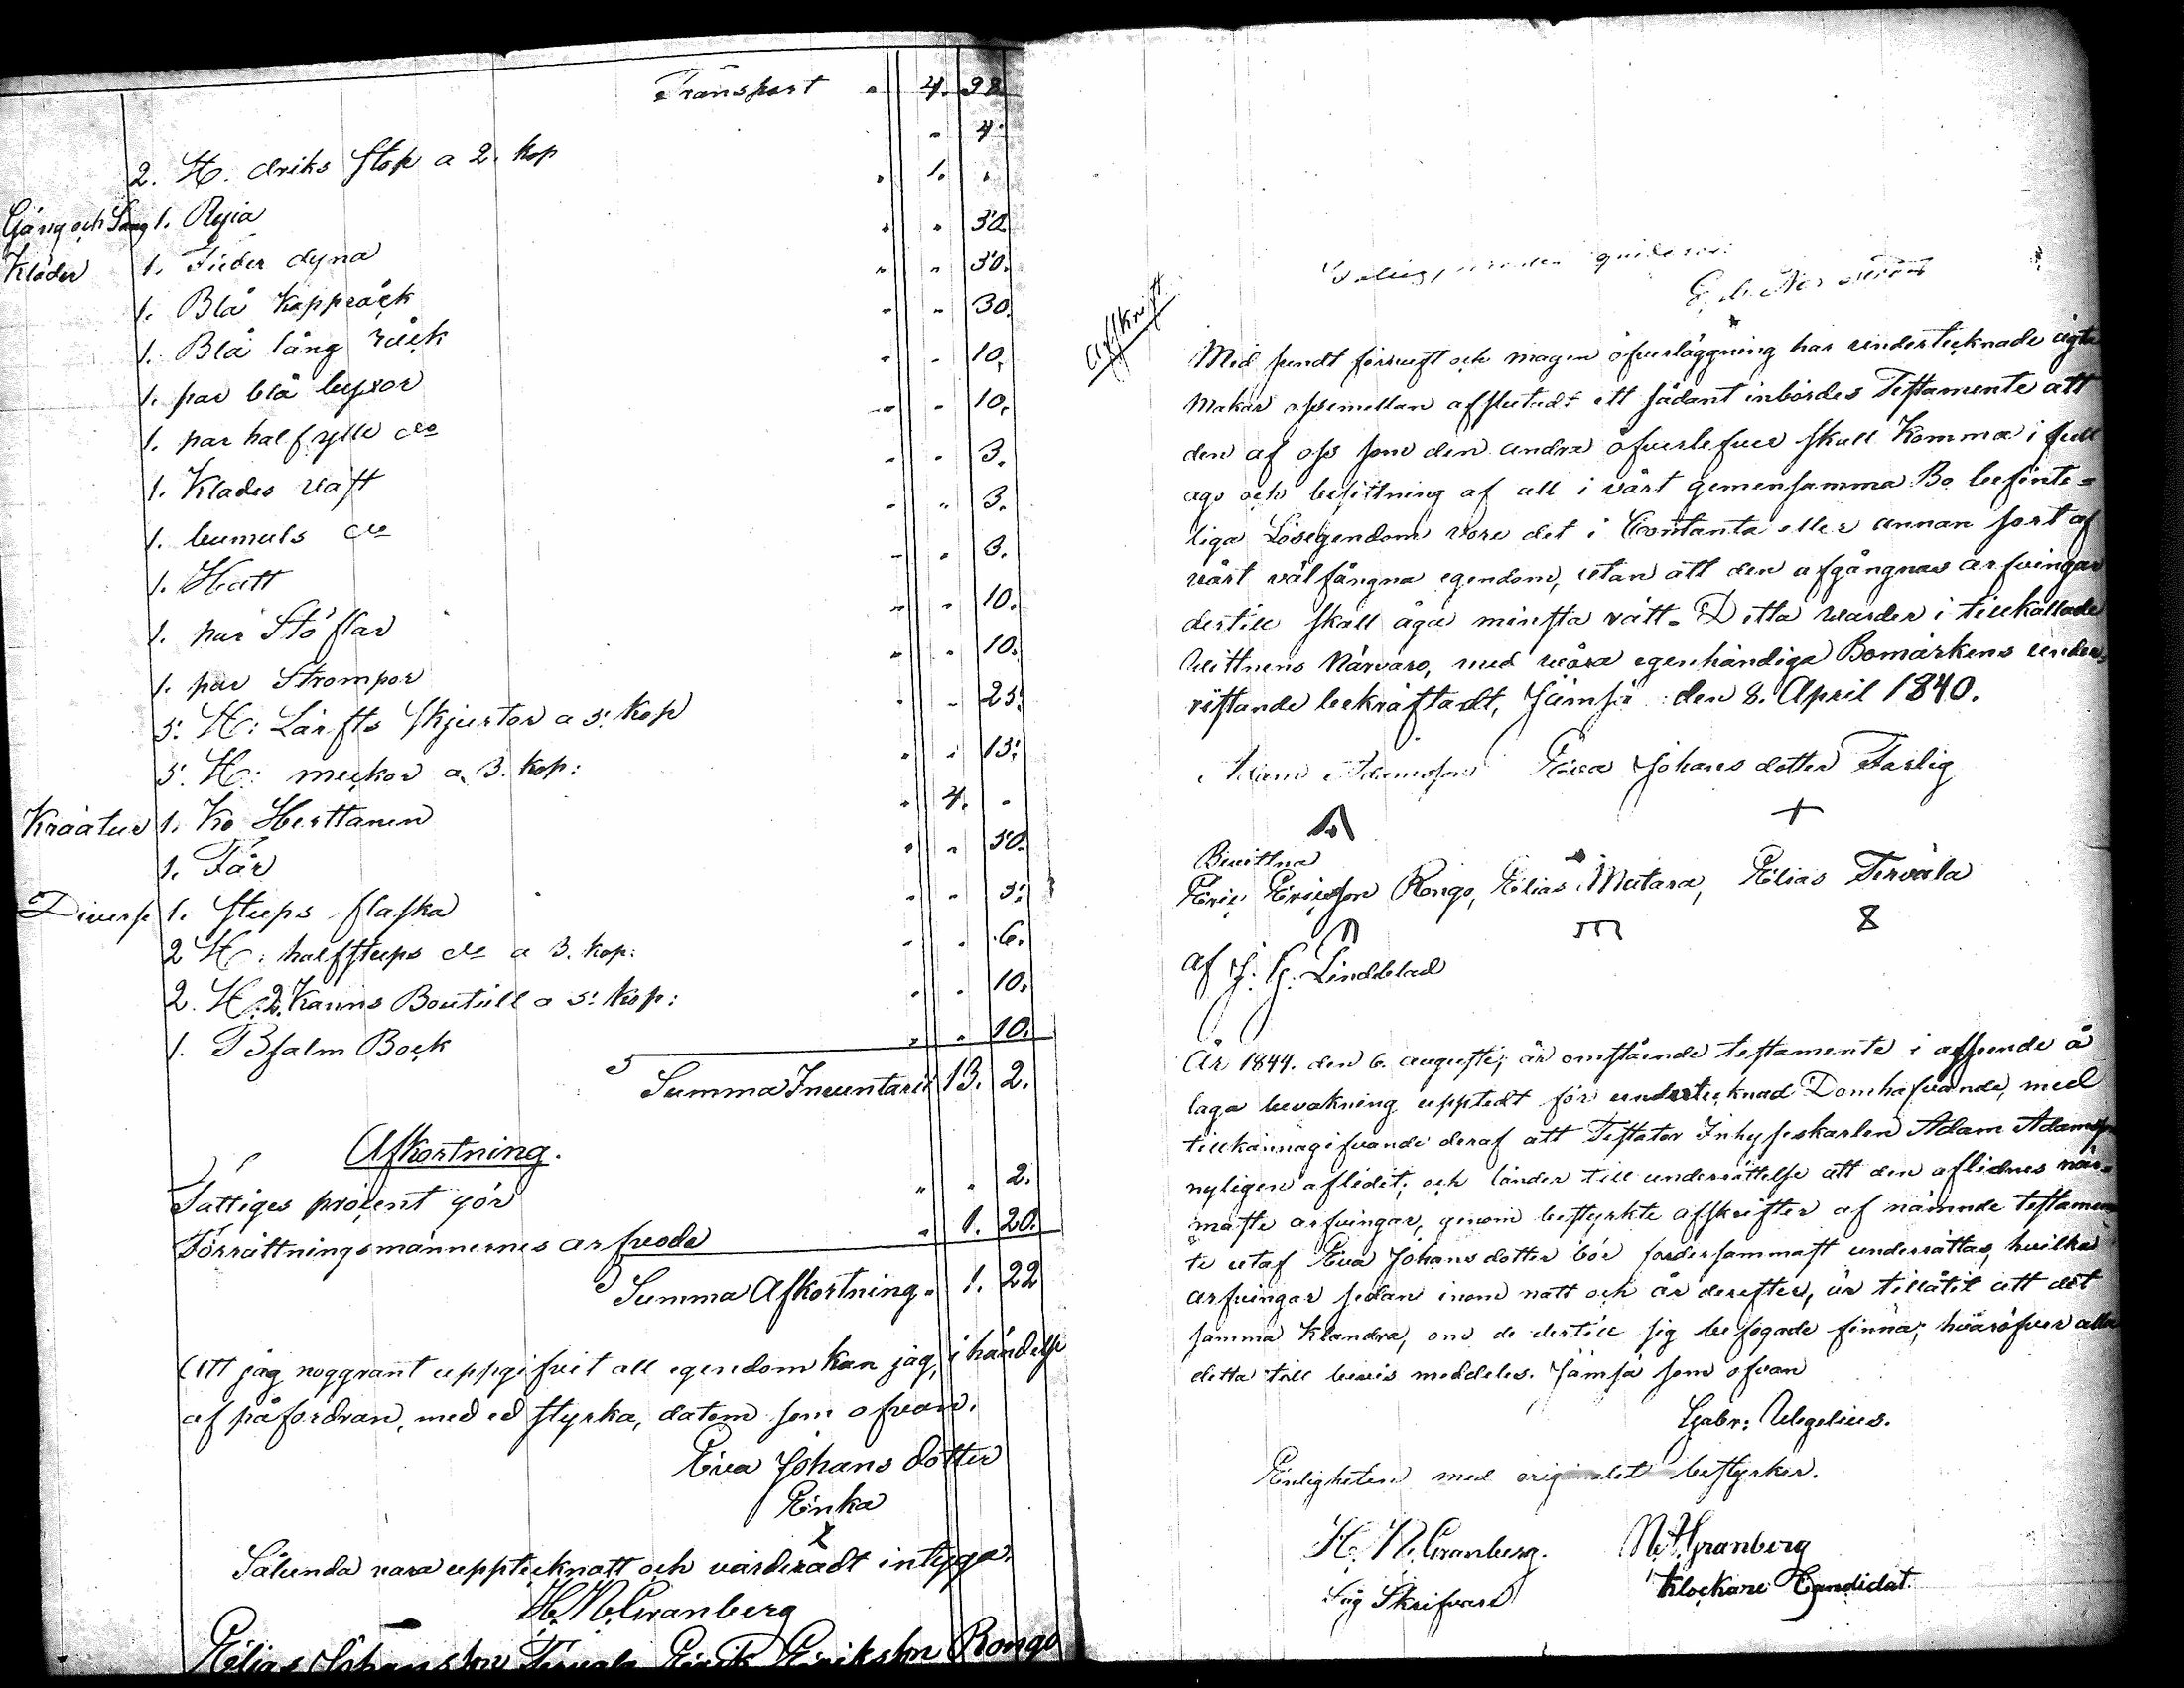 Transport " 4. 98.
2. St. driks stop a 2. kop " 4.
Gång och Säng 1. Ryia " 1. "
Kläder 1. Fieder dyna " " 30.
1. Blå kappråck " " 30.
1. Blå lång råck " " 30.
1. par blå byxor " " 10.
1. par halfylle do " " 10.
1. Klädes väst " " 3.
1. bumuls do " " 3.
1. Hatt " " 3.
1. par Stöflar " " 10.
1. par Strompor " " 10.
5. St: Lärfts skjurtor a 5. kop " " 25.
5. St: muckor a 3. kop: " " 15.
Kräatur 1. Ko Herttanen " 4. "
1. Får " " 50.
Diverse 1. stups flaska " " 5.
2 St: halfstups do a 3. kop: " " 6.
2. St: 2. Kanns Boutell a 5. kop: " " 10.
1. Psalm Bock " " 10.
Summa Inventarii 13. 2.
Afkortning.
Fattiges procent gör " " 2.
Förrättningsmännernes arfvode " 1. 20.
Summa Afkortning " 1. 22
Att jag noggrant uppgifvit all egendom kan jag, i händelse
af påfordran, med ed styrka, datom som ofvan.
Eva Johans dotter
Enka
Sålunda vara upptecknatt och värderadt intyga.
H. N. Granberg
Elias Johansson Tervala Erik Erikson Rongo
Afskrift
Med sundt förnuft och mogen öfverläggning har undertecknade ägta
Makar ossemellan afslutadt ett sådant inbördes Testamente att
den af oss som den andra öfverlefver skall komma i full
ägo och besittning af all i vårt gemensamma Bo befinte=
liga Lösegendom vore det i Contanta eller annan sort af
vårt välfångna egendom, utan att den afgångnas arfvingar
dertill skall äga minsta rätt. Detta varder i tillkallade
Vittnens Närvaro, med våra egenhändiga Bomärkens under
ristande bekräftadt, Jämsä den 8. April 1840.
Adam Adamsson Eva Johans dotter Farlig
Bevittna
Eric Ericsson Rongo, Elias Mutara, Elias Tervala
af J. G. Lindblad
År 1844. den 6. augusti; är omstående testamente i afseende å
laga bevakning upptedt för undertecknad Domhafvande, med
tillkännagifvande deraf att Testator Inhyseskarlen Adam Adamsson
nyligen aflidit; och länder till underrättelse att den aflidnes när=
maste arfvingar, genom bestyrkte afskrifter af nämnde testamen
te utaf Eva Johansdotter bör fordersammast underrättas, hvilka
arfvingar sedan inom natt och år derefter, är tillåtit att det
samma klandra, om de dertill sig befogade finna; hvaröfver alla
detta till bevis meddeles. Jämsä som ofvan
Gabr: Wegelius.
Enligheten med originalet bestyrker.
H. N. Granberg. N. A. Granberg
Skrifvare Klockare Candidat.